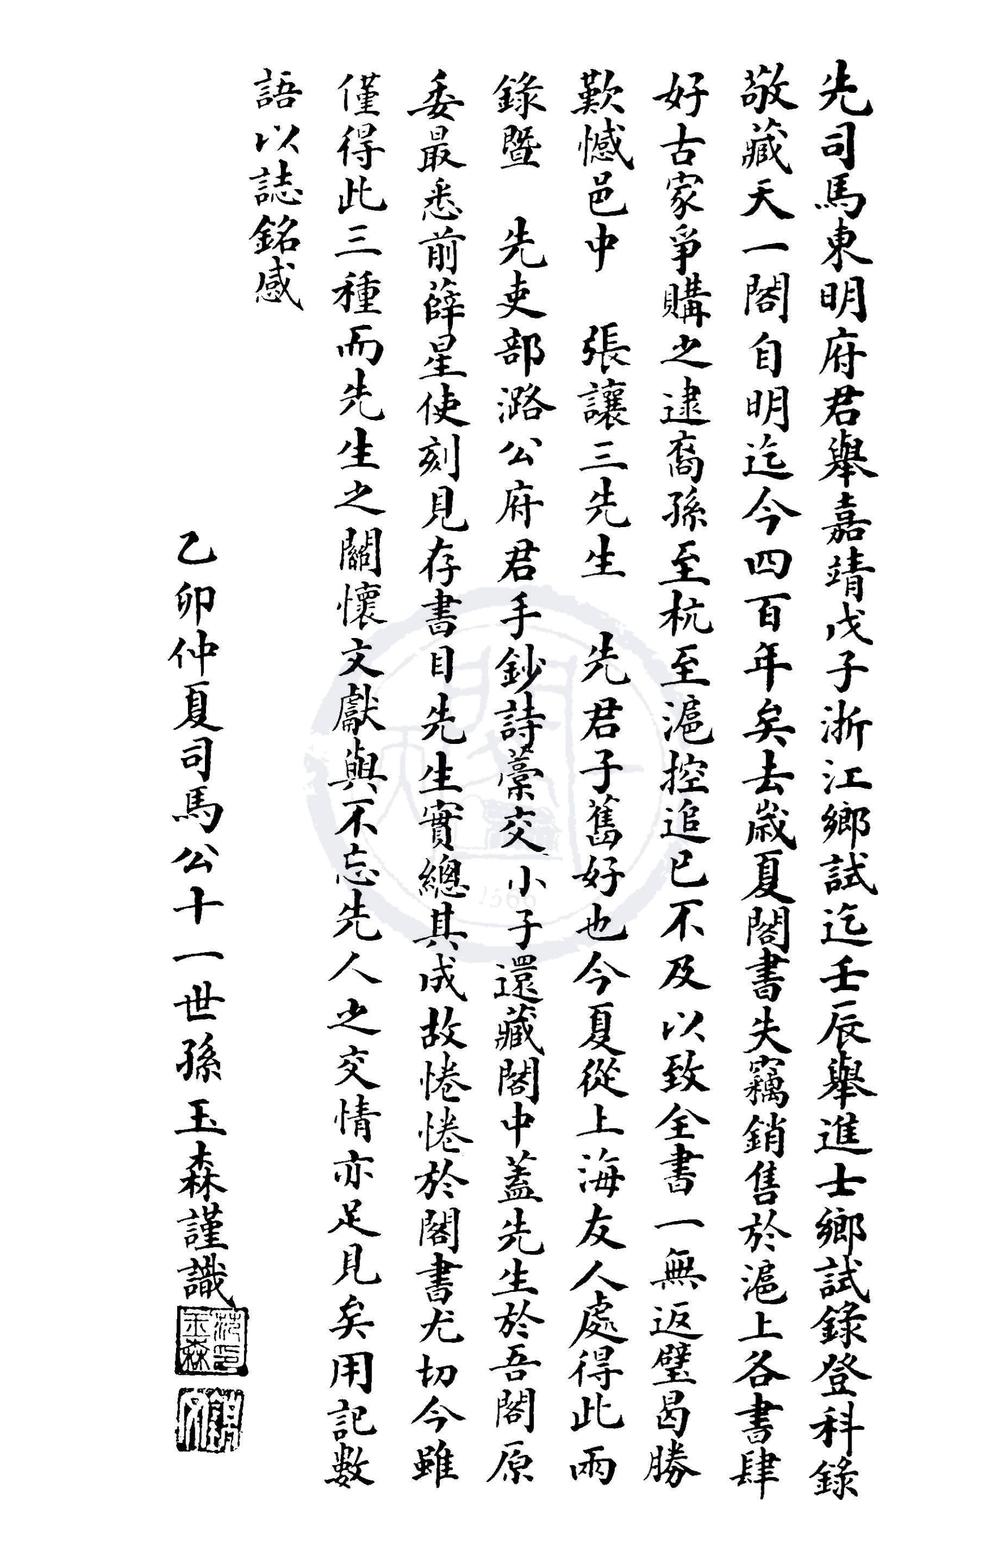 先司馬東明府君舉嘉靖戊子浙江鄉試迄壬辰舉進士鄉試錄登科錄
敬藏天一閣自明迄今四百年矣去歲夏閣書失竊銷售於滬上各書肆
好古家爭購之逮裔孫至杭至滬控追已不及以致全書一無返璧曷勝
歎憾邑中　張讓三先生　先君子舊好也今夏從上海友人處得此兩
錄暨　先吏部潞公府君手鈔詩藁交小子還藏閣中蓋先生於吾閣原
委最悉前薛星使刻見存書目先生實總其成故惓惓於閣書尤切今雖
僅得此三種而先生之關懷文獻與不忘先人之交情亦足見矣用記數
語以誌銘感
乙卯仲夏司馬公十一世孫玉森謹識
范印玉森
1566